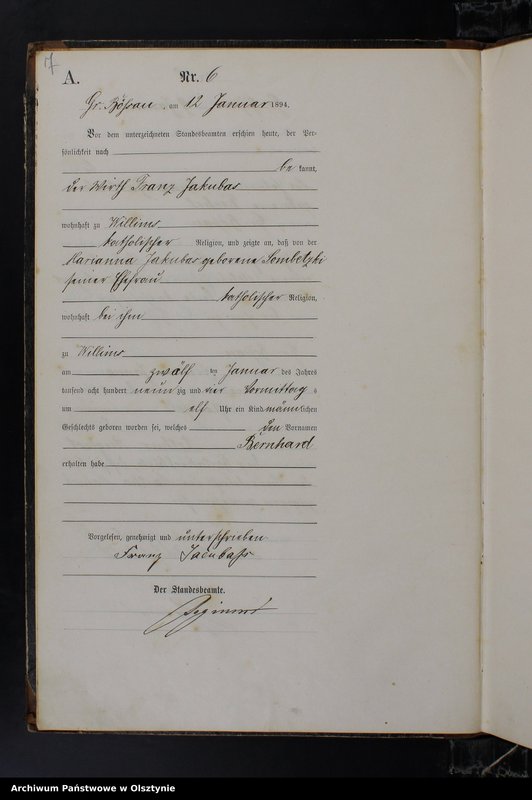 7
A. Nr. 6
Gr. Bößau, am 12 Januar 1894.
Vor dem unterzeichneten Standesbeamten erschien heute, der Per-
sönlichkeit nach
be kannt,
der Wirth Franz Jakubas
wohnhaft zu Willims
katholischer Religion, und zeigte an, daß von der
Marianna Jakubas geborene Sombetzki
seiner Ehefrau
katholischer Religion,
wohnhaft bei ihm
zu Willims
am zwölf ten Januar des Jahres
tausend acht hundert neun zig und vier Vormittag s
um elf Uhr ein Kind männlichen
Geschlechts geboren worden sei, welches den Vornamen
Bernhard
erhalten habe
Vorgelesen, genehmigt und unterschrieben
Franz Jacubass
Der Standesbeamte.
Archiwum Państwowe w Olsztynie